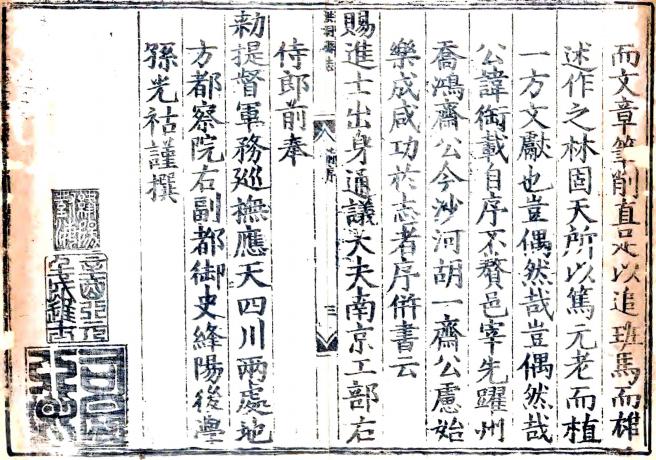 而文章筆削直足以追班馬而
述作之林固天所以篤元老而植
一方文獻也豈偶然哉豈偶然哉
公諱銜載自序不贅邑宰先躍州
喬鴻齋公今沙河胡一齋公慮始
樂成咸功於志者序倂書云
三
賜進士出身通議大夫南京工部右
侍郎前奉
勑提督軍務廵撫應天四川兩處地
方都察院右副都御史絳陽後學
孫光祜謹撰